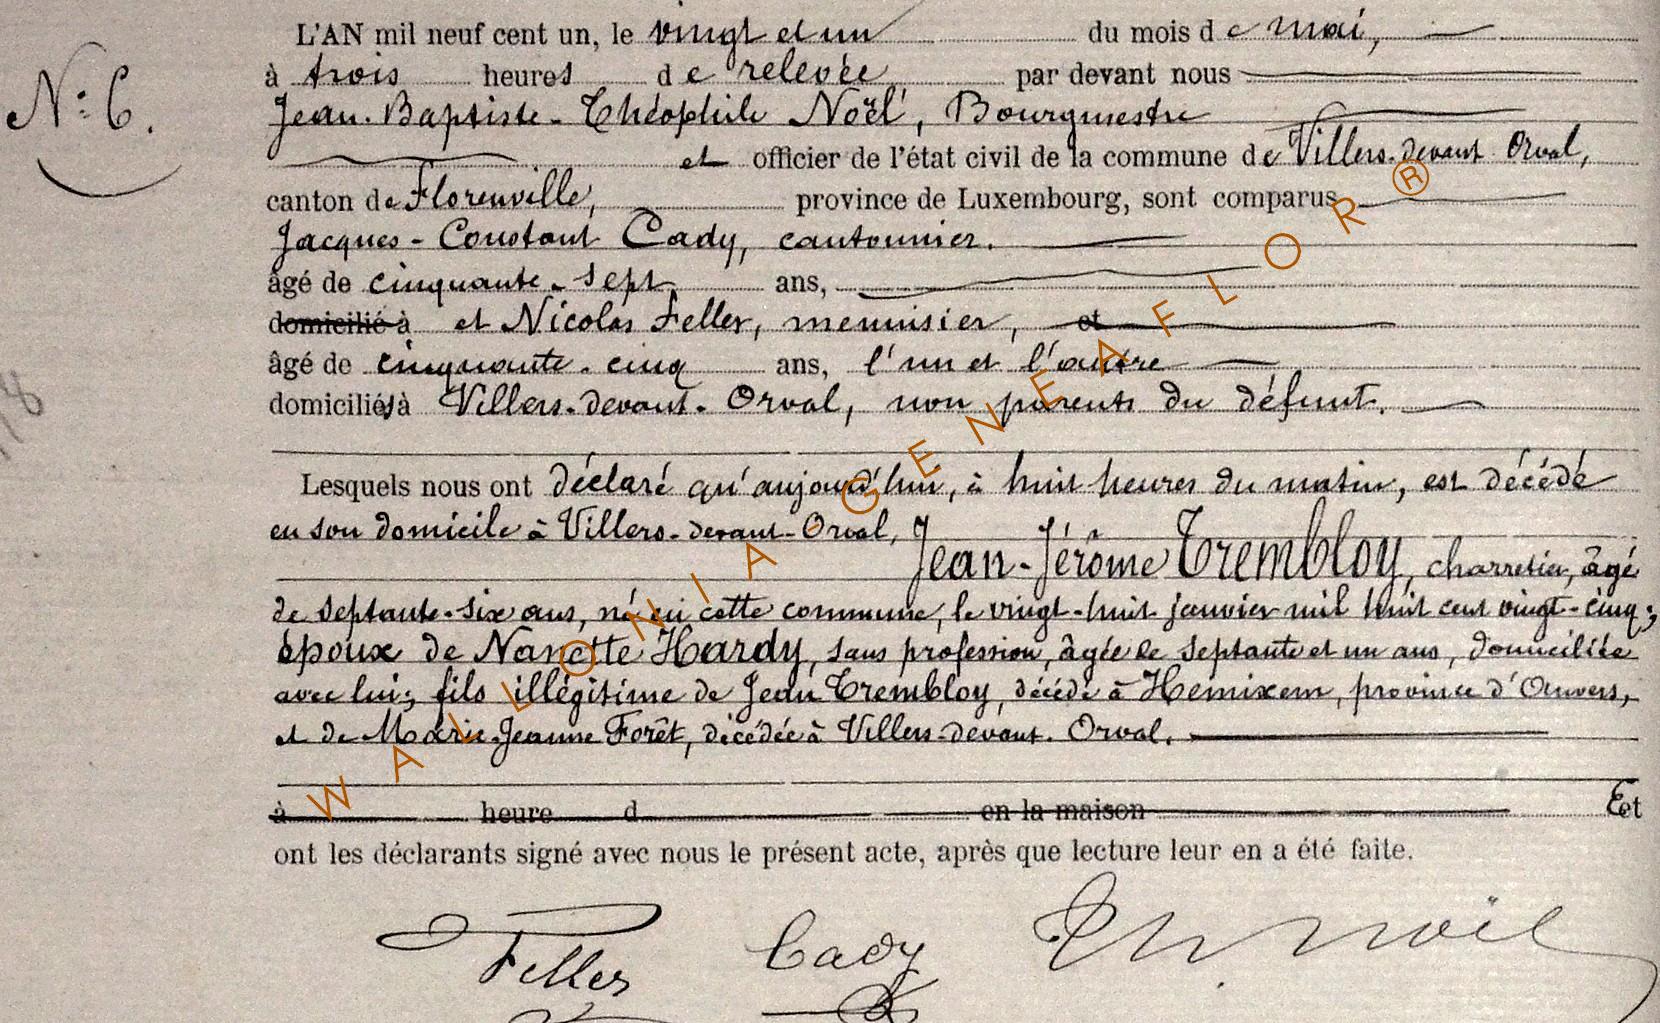 L'AN mil neuf cent un, le vingt et un du mois de mai,
N° 6.
à trois heures de relevée par devant nous
Jean-Baptiste-Théophile Noël, Bourgmestre
et officier de l'état civil de la commune de Villers-devant Orval,
canton de Florenville, province de Luxembourg, sont comparus
Jacques-Constant Cady, cantonnier.
âgé de cinquante-sept ans,
domicilié à et Nicolas Feller, menuisier, et
âgé de cinquante-cinq ans, l'un et l'autre
domiciliés à Villers-devant-Orval, non parents du défunt.
Lesquels nous ont déclaré qu'aujourd'hui, à huit heures du matin, est décédé
en son domicile à Villers-devant-Orval, Jean-Jérôme Trembloy, charretier, âgé
de septante-six ans, né en cette commune, le vingt-huit janvier mil huit cent vingt-cinq;
époux de Nanette Hardy, sans profession, âgée de septante et un ans, domiciliée
avec lui; fils illégitime de Jean Trembloy, décédé à Hemixem, province d'Anvers,
et de Marie-Jeanne Forêt, décédée à Villers-devant-Orval.
à heure d en la maison Et
ont les déclarants signé avec nous le présent acte, après que lecture leur en a été faite.
Feller Cady Th Noël
WALLONIA-GENEAFLOR®